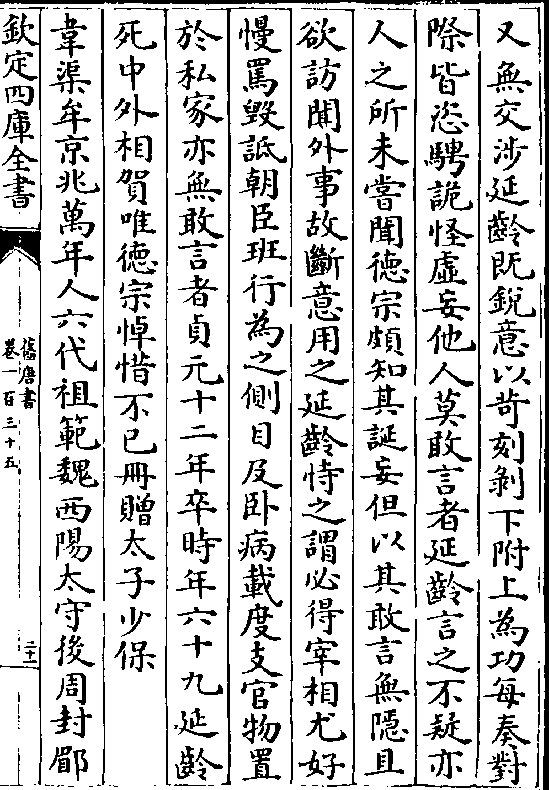 又無交涉延齡既銳意以苛刻剝下附上為功每奏對
際皆恣騁詭怪虛妄他人莫敢言者延齡言之不疑亦
人之所未嘗聞德宗頗知其誕妄但以其敢言無隱且
欲訪聞外事故斷意用之延齡恃之謂必得宰相尤好
慢罵毀詆朝臣班行為之側目及卧病載度支官物置
於私家亦無敢言者貞元十二年卒時年六十九延齡
死中外相賀唯德宗悼惜不已冊贈太子少保
韋渠牟京兆萬年人六代祖範魏西陽太守後周封郿
欽定四庫全書
舊唐書
卷一百三十五
二十一